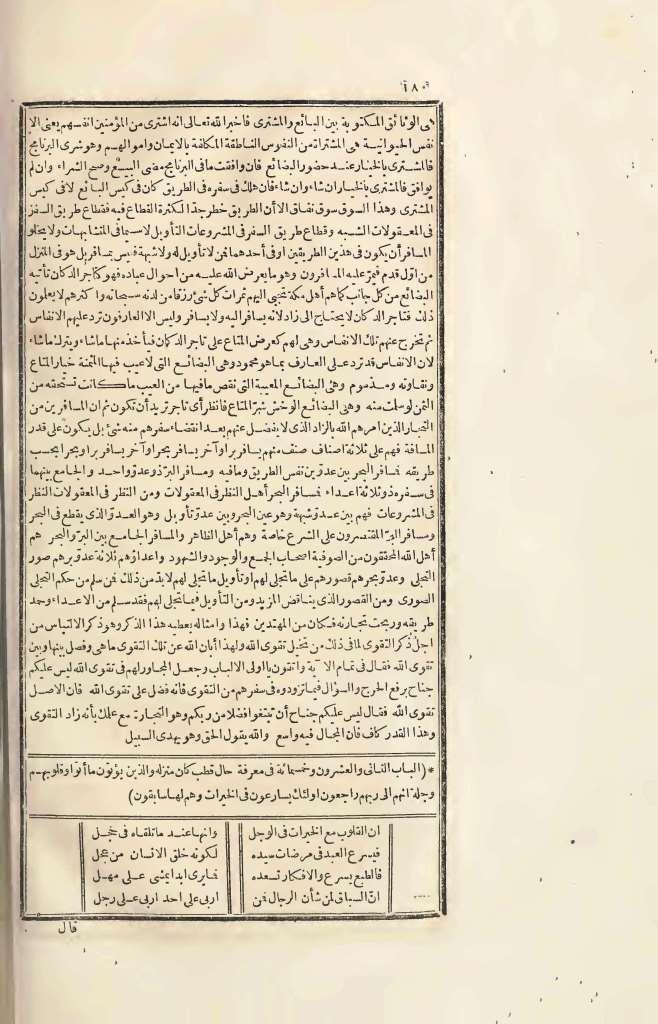 ١٨٠
هى الوثائق المكتوبة بين البائع والمشترى فاخبر الله تعالى انه اشترى من المؤمنين انفسهم يعنى الا
نفس الحيوانية هى المشتراة من النفوس الناطقة المكلفة بالايمان واموالهم وهو شرى البرنامج
فالمشترى بالخيار عند حضور البضائع فان وافقت مافى البرنامج مضى البيع وصح الشراء وان لم
يوافق فالمشترى بالخيار ان شاء وان شاء فان هلك فى سفره فى الطريق كان فى كيس البائع لا فى كيس
المشترى وهذا السوق سوق نفاق الا أن الطريق خطر جدا لكثرة القطاع فيه فقطاع طريق السفر
فى المعقولات الشبه وقطاع طريق السفر فى المشروعات التأويل لاسيما فى المتشابهات ولا يخلو
المسافر أن يكون فى هذين الطريقين او فى أحدهما فمن لا تأويل له ولا شبهة فليس بمسافر بل هو فى المنزل
من اول قدم فيمر عليه المسافرون وهو ما يعرض الله عليه من احوال عباده فهو كتاجر الدكان تأتيه
البضائع من كل جانب كما هم أهل مكة تجبى اليهم ثمرات كل شئ رزقا من لدنه سبحانه واكثرهم لا يعلمون
ذلك فتاجر الدكان لا يحتاج الى زاد لانه يسافر اليه ولا يسافر وليس الا العارفون ترد عليهم الانفاس
ثم تخرج عنهم تلك الانفاس وهى لهم كعرض المتاع على تاجر الدكان فيأخذ منها ما شاء ويترك ما شاء
لان الانفاس قد ترد على العارف بما هو محمود وهى البضائع التى لا عيب فيها الثمنة خيار المتاع
ونقاوته ومذموم وهى البضائع المعيبة التى نقص ما فيها من العيب ما كانت تستحقه من
الثمن لو سلمت منه وهى البضائع الوخش شر المتاع فانظر أى تاجر تريد أن تكون ثم ان المسافرين من
التجار الذين امرهم الله بالزاد الذى لا يفضل عنهم بعد انقضاء سفرهم منه شئ بل يكون على قدر
المسافة فهم على ثلاثة اصناف صنف منهم يسافر برا وآخر يسافر بحرا وآخر يسافر برا وبحرا بحسب
طريقه فمسافر البحر بين عدوين نفس الطريق وما فيه ومسافر البر ذو عدو واحد والجامع بينهما
فى سفره ذو ثلاثة اعداء فمسافر البحر أهل النظر فى المعقولات ومن النظر فى المعقولات النظر
فى المشروعات فهم بين عدو شبهة وهو عين البحر وبين عدو تأويل وهو العدو الذى يقطع فى البحر
ومسافر البر المقتصرون على الشرع خاصة وهم أهل الظاهر والمسافر الجامع بين البر والبحر هم
أهل الله المحققون من الصوفية اصحاب الجمع والوجود والشهود واعداؤهم ثلاثة عدو برهم صور
التجلى وعدو بحرهم قصورهم على ما تجلى لهم او تأويل ما تجلى لهم لابد من ذلك فمن سلم من حكم التجلى
الصورى ومن القصور الذى يناقض المزيد ومن التأويل فيما تجلى لهم فقد سلم من الاعداء وحمد
طريقه وربحت تجارته فكان من المهتدين فهذا وامثاله يعطيه هذا الذكر وهو ذكر الالتباس من
اجل ذكر التقوى لما فى ذلك من تخيل تقوى الله ولهذا أبان الله عن تلك التقوى ما هى وفصل بينها وبين
تقوى الله فقال فى تمام الاية واتقون يا اولى الالباب وجعل المجاور لهم فى تقوى الله ليس عليكم
جناح برفع الحرج والسؤال فيما تزودوه فى سفرهم من التقوى فانه فضل على تقوى الله فان الاصل
تقوى الله فقال ليس عليكم جناح أن تبتغوا فضلا من ربكم وهو التجارة مع علمك بأنه زاد التقوى
وهذا القدر كاف فان المجال فيه واسع والله يقول الحق وهو يهدى السبيل
* (الباب الثانى والعشرون وخمسمائة فى معرفة حال قطب كان منزله والذين يؤتون ما آتوا وقلوبهم
وجلة انهم الى ربهم راجعون اولئك يسارعون فى الخيرات وهم لها سابقون)
ان القلوب مع الخيرات فى الوجل وانها عند ما تلقاه فى خجل
فيسرع العبد فى مرضات سيده لكونه خلق الانسان من عجل
فالطبع يسرع والافكار تسعده فما يرى ابدا يمشى على مهل
ان السباق لمن شأن الرجال فمن اربى على احد اربى على رجل
قال